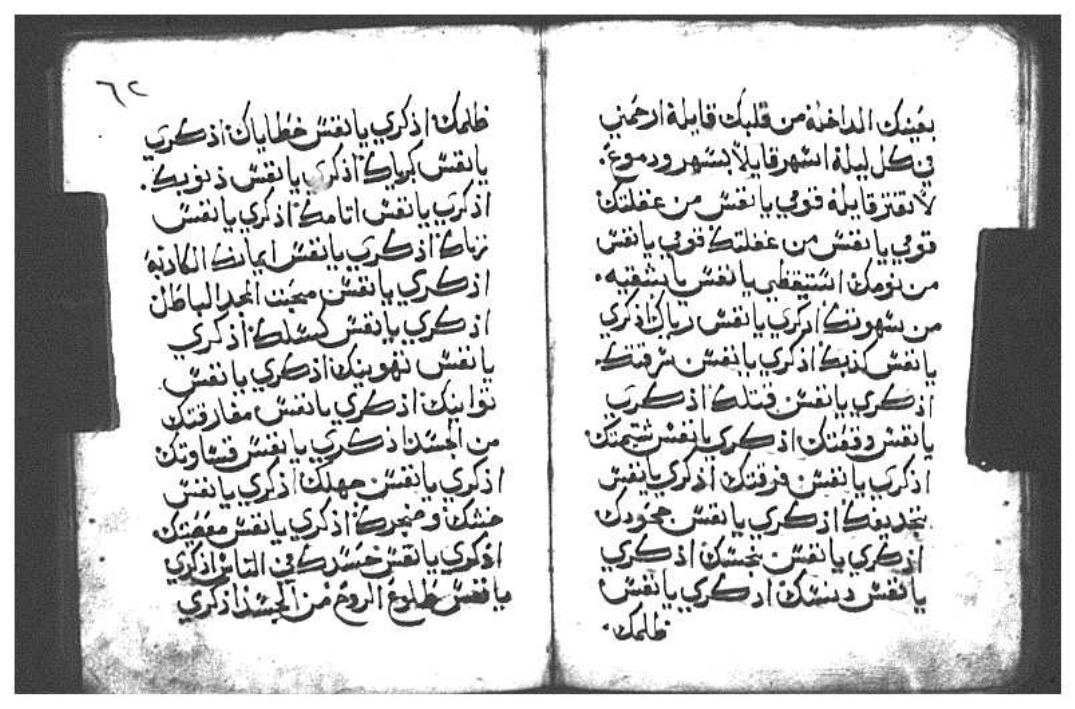 بعينك الداخلة من قلبك قايلة ارحمني
في كل ليلة اسهر قايلا بسهر ودموع
لا تفتر قايلة قومي يا نفس من غفلتك
قومي يا نفس من غفلتك قومي يا نفس
من نومك استيقظي يا نفس يا شقيه
من شهوتك اذكري يا نفس رياك اذكري
يا نفس كذبك اذكري يا نفس سرقتك
اذكري يا نفس قتلك اذكري
يا نفس اذكري يا نفس شتيمتك
اذكري يا نفس فرقتك اذكري يا نفس
تجديفك اذكري يا نفس جحودك
اذكري يا نفس نجسك اذكري
يا نفس دنسك اذكري يا نفس
ظلمك
٦٢
ظلمك اذكري يا نفس خطاياك اذكري
يا نفس كبرياك اذكري يا نفس ذنوبك
اذكري يا نفس اتامك اذكري يا نفس
زناك اذكري يا نفس ايمانك الكادبة
اذكري يا نفس محبت المجد الباطل
اذكري يا نفس كسلك اذكري
يا نفس تهوينك اذكري يا نفس
توانيك اذكري يا نفس مفارقتك
من الجسد اذكري يا نفس قساوتك
اذكري يا نفس جهلك اذكري يا نفس
غشك وضجرك اذكري يا نفس
اذكري يا نفس في الناس اذكري
يا نفس طلوع الروح من الجسد اذكري